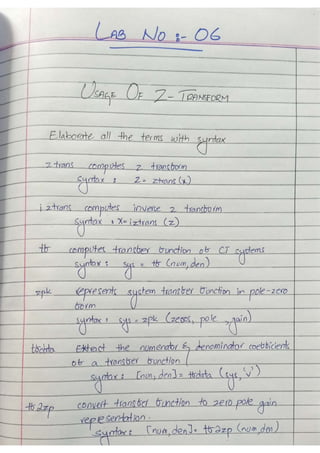 LAB NO :- 06
USAGE OF Z-TRANSFORM
Elaborate all the terms with syntax
ztrans computes z transform
syntax : Z = ztrans(x)
iztrans computes inverse z transform
syntax : x= iztrans (z)
tf computes transfer function of CT systems
syntax : sys = tf (num, den)
zpk represents system transfer function in pole-zero
form
syntax : sys = zpk (zeros, pole, gain)
tfdata Extract the numerator & denominator coefficients
of a transfer function
syntax : [num, den]= tfdata (sys, 'v')
tf2zp convert transfer function to zero pole gain
representation.
syntax: [num, den]= tf2zp (num, den)